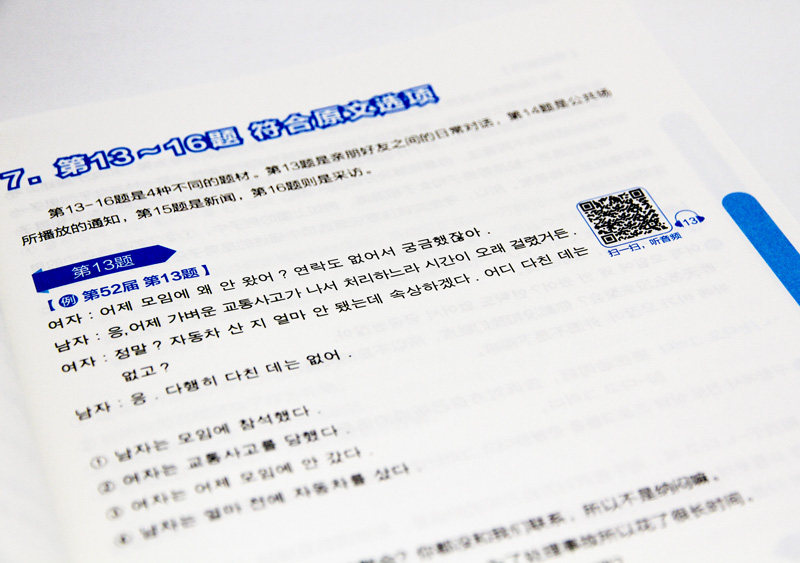 7. 第13~16题 符合原文选项
第13-16题是4种不同的题材。第13题是亲朋好友之间的日常对话，第14题是公共场
所播放的通知，第15题是新闻，第16题则是采访。
13
扫一扫，听音频
第13题
【例 第52届 第13题】
여자 : 어제 모임에 왜 안 왔어 ? 연락도 없어서 궁금했잖아 .
남자 : 응,어제 가벼운 교통사고가 나서 처리하느라 시간이 오래 걸렸거든 .
여자 : 정말 ? 자동차 산 지 얼마 안 됐는데 속상하겠다 . 어디 다친 데는
없고 ?
남자 : 응 . 다행히 다친 데는 없어 .
① 남자는 모임에 참석했다 .
② 여자는 교통사고를 당했다 .
③ 여자는 어제 모임에 안 갔다 .
④ 남자는 얼마 전에 자동차를 샀다 .
你都没和我们联系，所以不是纳闷嘛。
处理事故所以花了很长时间。